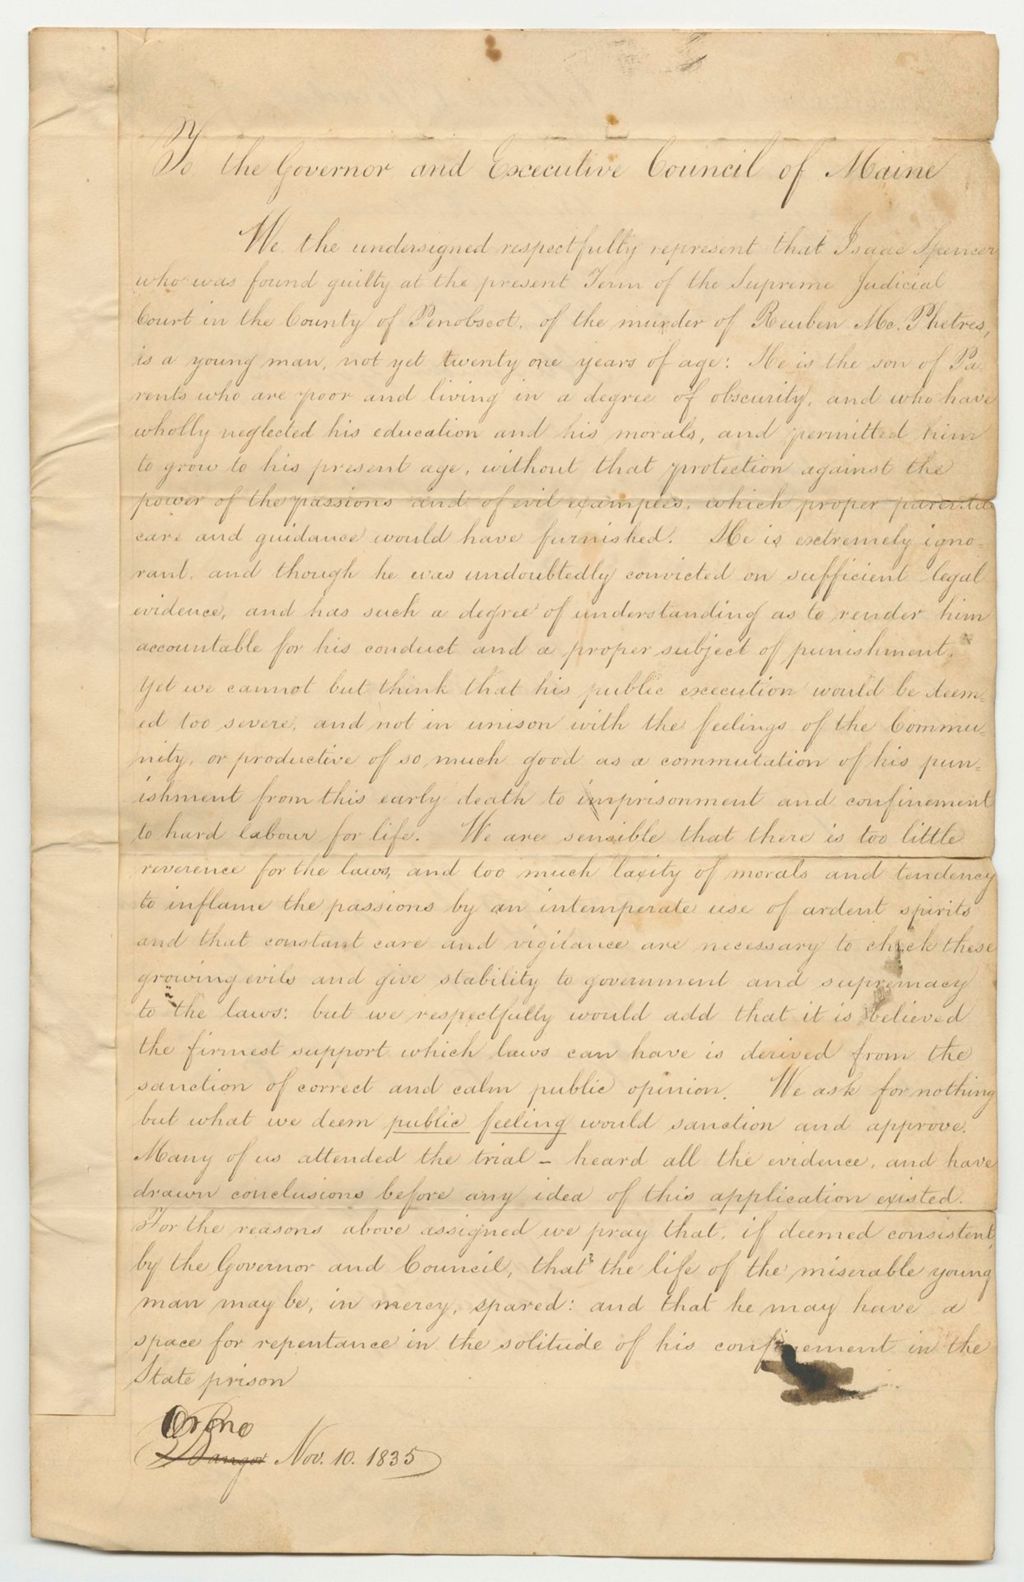 To the Governor and Executive Council of Maine
We the undersigned respectfully represent that Isaac Spencer
who was found guilty at the present Term of the Supreme Judicial
Court in the County of Penobscot, of the murder of Reuben Mc. Phetres,
is a young man, not yet twenty one years of age: He is the son of Pa
rents who are poor and living in a degree of obscurity, and who have
wholly neglected his education and his morals, and permitted him
to grow to his present age, without that protection against the
power of the passions and of evil examples, which proper parental
care and guidance would have furnished. He is extremely igno-
rant, and though he was undoubtedly convicted on sufficient legal
evidence, and has such a degree of understanding as to render him
accountable for his conduct and a proper subject of punishment,
yet we cannot but think that his public execution would be deem-
ed too severe, and not in unison with the feelings of the Commu-
nity, or productive of so much good as a commutation of his pun-
ishment from this early death to imprisonment and confinement
to hard labour for life. We are sensible that there is too little
reverence for the laws, and too much laxity of morals and tendency
to inflame the passions by an intemperate use of ardent spirits
and that constant care and vigilance are necessary to check these
growing evils and give stability to government and supremacy
to the laws: but we respectfully would add that it is believed
the firmest support which laws can have is derived from the
sanction of correct and calm public opinion. We ask for nothing
but what we deem public feeling would sanction and approve.
Many of us attended the trial - heard all the evidence, and have
drawn conclusions before any idea of this application existed.
For the reasons above assigned we pray that, if deemed consistent,
by the Governor and Council, that the life of the miserable young
man may be, in mercy, spared: and that he may have a
space for repentance in the solitude of his confinement in the
State prison
Orono
Bangor Nov. 10. 1835